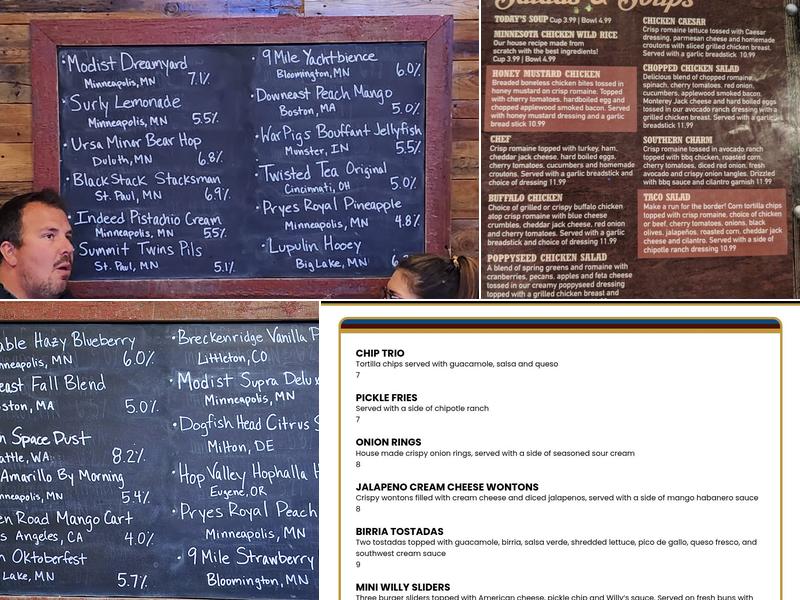 • Modist Dreamyard
Minneapolis, MN 7.1%
• Surly Lemonade
Minneapolis, MN 5.5%
• Ursa Minor Bear Hop
Duluth, MN 6.8%
• Black Stack Stacksman
St. Paul, MN 6.9%
• Indeed Pistachio Cream
Minneapolis, MN 5.5%
• Summit Twins Pils
St. Paul, MN 5.1%
• 9 Mile Yachtbience
Bloomington, MN 6.0%
• Downeast Peach Mango
Boston, MA 5.0%
• War Pigs Bouffant Jellyfish
Munster, IN 5.5%
• Twisted Tea Original
Cincinnati, OH 5.0%
• Pryes Royal Pineapple
Minneapolis, MN 4.8%
• Lupulin Hooey
Big Lake, MN
Salads & Soups
TODAY'S SOUP Cup 3.99 | Bowl 4.99
MINNESOTA CHICKEN WILD RICE
Our house recipe made from
scratch with the best ingredients!
Cup 3.99 | Bowl 4.99
HONEY MUSTARD CHICKEN
Breaded boneless chicken bites tossed in
honey mustard on crisp romaine. Topped
with cherry tomatoes. hardboiled egg and
chopped applewood smoked bacon. Served
with honey mustard dressing and a garlic
bread stick 10.99
CHEF
Crisp romaine topped with turkey, ham,
cheddar jack cheese, hard boiled eggs,
cherry tomatoes. cucumbers and homemade
croutons. Served with a garlic breadstick and
choice of dressing 11.99
BUFFALO CHICKEN
Choice of grilled or crispy buffalo chicken
atop crisp romaine with blue cheese
crumbles, cheddar jack cheese, red onion
and cherry tomatoes. Served with a garlic
breadstick and choice of dressing 11.99
POPPYSEED CHICKEN SALAD
A blend of spring greens and romaine with
cranberries, pecans, apples and feta cheese
tossed in our creamy poppyseed dressing
topped with a grilled chicken breast and
CHICKEN CAESAR
Crisp romaine lettuce tossed with Caesar
dressing, parmesan cheese and homemade
croutons with sliced grilled chicken breast.
Served with a garlic breadstick 10.99
CHOPPED CHICKEN SALAD
Delicious blend of chopped romaine,
spinach, cherry tomatoes. red onion,
cucumbers, applewood smoked bacon.
Monterey Jack cheese and hard boiled eggs
tossed in our avocado ranch dressing with a
grilled chicken breast. Served with a garlic
breadstick 11.99
SOUTHERN CHARM
Crisp romaine tossed in avocado ranch
topped with bbq chicken, roasted corn,
cherry tomatoes, diced red onion, fresh
avocado and crispy onion tangles. Drizzled
with bbq sauce and cilantro garnish 11.99
TACO SALAD
Make a run for the border! Corn tortilla chips
topped with crisp romaine, choice of chicken
or beef, cherry tomatoes, onions, black
olives, jalapeños, roasted corn, cheddar jack
cheese and cilantro. Served with a side of
chipotle ranch dressing 10.99
able Hazy Blueberry
nneapolis, MN 6.0%
east Fall Blend
oston, MA 5.0%
n Space Dust
attle, WA 8.2%
Amarillo By Morning
nneapolis, MN 5.4%
en Road Mango Cart
s Angeles, CA 4.0%
n Oktoberfest
Lake, MN 5.7%
• Breckenridge Vanilla P
Littleton, CO
• Modist Supra Delu
Minneapolis, MN
• Dogfish Head Citrus S
Milton, DE
• Hop Valley Hophalla H
Eugene, OR
• Pryes Royal Peach
Minneapolis, MN
• 9 Mile Strawberry
Bloomington, MN
CHIP TRIO
Tortilla chips served with guacamole, salsa and queso
7
PICKLE FRIES
Served with a side of chipotle ranch
7
ONION RINGS
House made crispy onion rings, served with a side of seasoned sour cream
8
JALAPENO CREAM CHEESE WONTONS
Crispy wontons filled with cream cheese and diced jalapenos, served with a side of mango habanero sauce
8
BIRRIA TOSTADAS
Two tostadas topped with guacamole, birria, salsa verde, shredded lettuce, pico de gallo, queso fresco, and
southwest cream sauce
9
MINI WILLY SLIDERS
Three burger sliders topped with American cheese, pickle chip and Willy's sauce. Served on fresh buns with